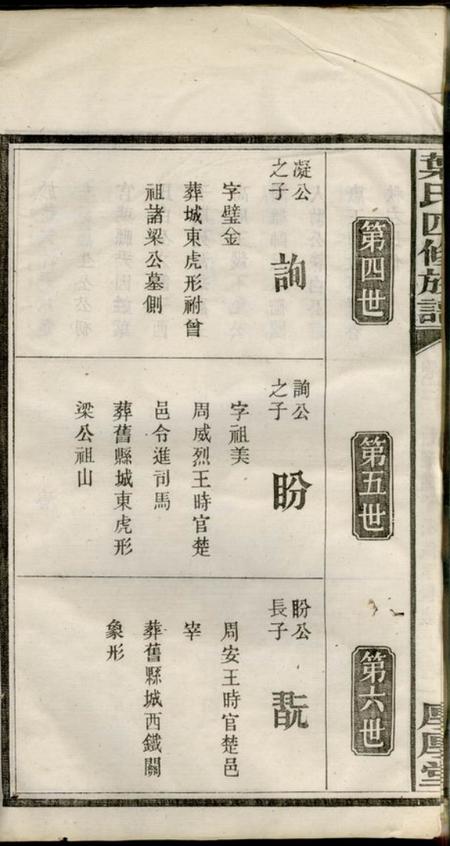 葉氏四修族譜
厚堂
第四世
凝公
之子
詢
字璧金
葬城東虎形祔曾
祖諸梁公墓側
第五世
詢公
之子
盼
字祖美
周威烈王時官楚
邑令進司馬
葬舊縣城東虎形
梁公祖山
第六世
盼公
長子
翫
周安王時官楚邑
宰
葬舊縣城西鐵關
象形